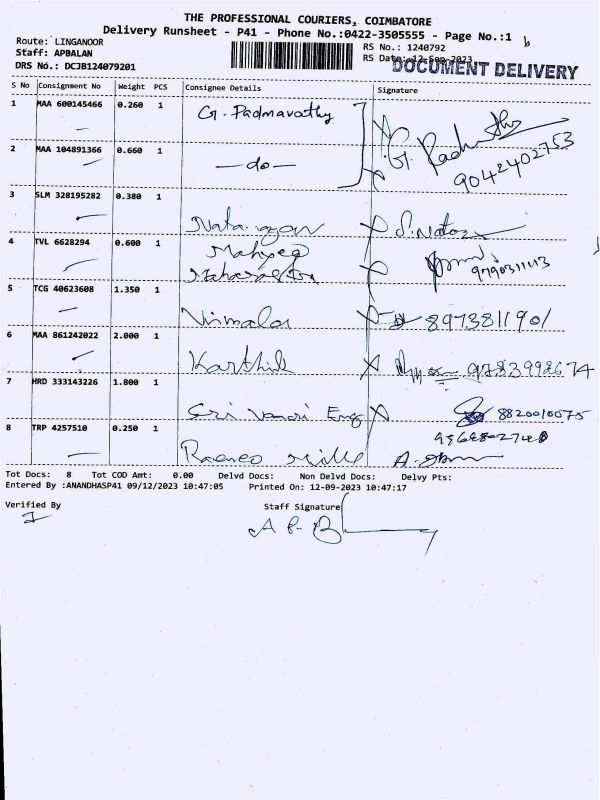 THE PROFESSIONAL COURIERS, COIMBATORE
Delivery Runsheet - P41 - Phone No.:0422-3505555 - Page No.:1
Route: LINGANOOR
RS No.: 1240792
Staff: APBALAN
RS Date: 12-Sep-2023
DRS No.: DCJB124079201
DOCUMENT DELIVERY
S No Consignment No Weight PCS Consignee Details Signature
1 MAA 600145466 0.260 1 G. Padmavathy
2 MAA 104891366 0.660 1 —do— 9042402753
3 SLM 328195282 0.380 1
4 TVL 6628294 0.600 1
5 TCG 40623608 1.350 1 Nirmala 8973811901
6 MAA 861242022 2.000 1 Karthik
7 HRD 333143226 1.800 1 8820010075
8 TRP 4257510 0.250 1
Tot Docs: 8 Tot COD Amt: 0.00 Delvd Docs: Non Delvd Docs: Delvy Pts:
Entered By :ANANDHASP41 09/12/2023 10:47:05 Printed On: 12-09-2023 10:47:17
Verified By
Staff Signature